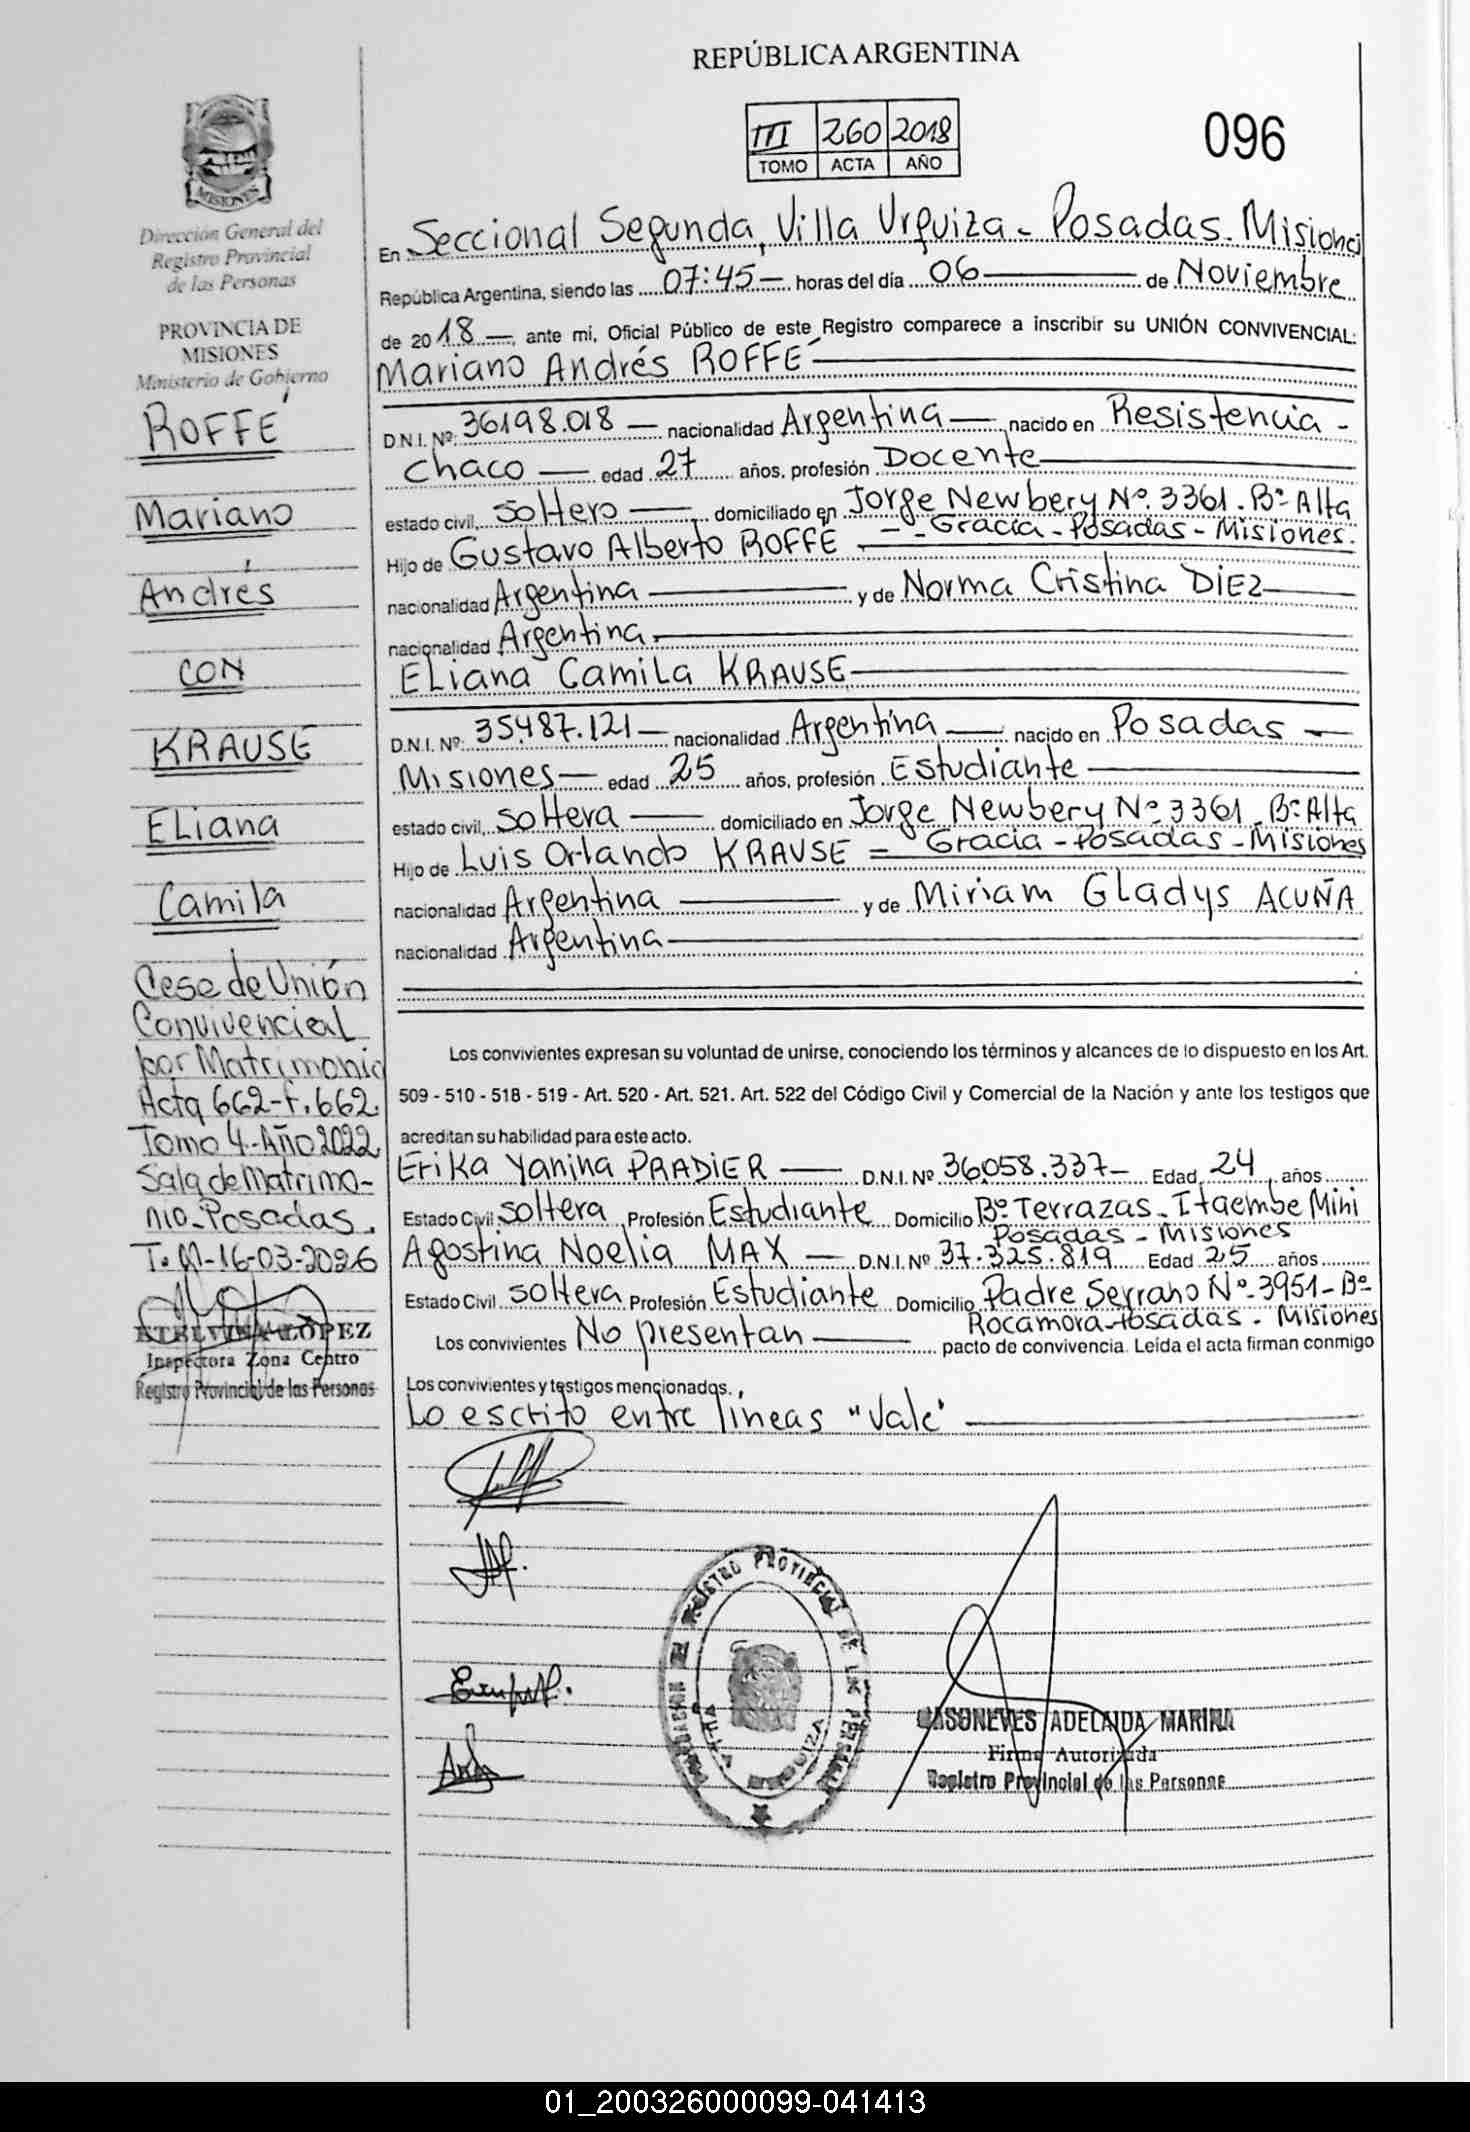 REPÚBLICA ARGENTINA
III 260 2018
TOMO ACTA AÑO
096
MISIONES
Dirección General del
Registro Provincial
de las Personas
PROVINCIA DE
MISIONES
Ministerio de Gobierno
ROFFÉ
Mariano
Andrés
CON
KRAUSE
ELiana
Camila
Cese de Unión
Convivencial
por Matrimonio
Acta 662-F.662.
Tomo 4-Año 2022
Sala de Matrimo-
nio-Posadas.
16-03-2026
ETELVINA LOPEZ
Inspectora Zona Centro
Registro Provincial de las Personas
En Seccional Segunda, Villa Urquiza - Posadas. Misiones
República Argentina, siendo las 07:45 — horas del día 06 — de Noviembre
de 2018 —, ante mi, Oficial Público de este Registro comparece a inscribir su UNIÓN CONVIVENCIAL:
Mariano Andrés ROFFÉ —
D.N.I. Nº: 36198.018 — nacionalidad Argentina — nacido en Resistencia -
Chaco — edad 27 años, profesión Docente —
estado civil, soltero — domiciliado en Jorge Newbery Nº 3361. Bº Alta
Gracia - Posadas - Misiones.
Hijo de Gustavo Alberto ROFFÉ —
nacionalidad Argentina — y de Norma Cristina DIEZ —
nacionalidad Argentina. —
ELiana Camila KRAUSE —
D.N.I. Nº: 35.487.121 — nacionalidad Argentina — nacido en Posadas —
Misiones — edad 25 años, profesión Estudiante —
estado civil, soltera — domiciliado en Jorge Newbery Nº 3361. Bº Alta
Gracia - Posadas - Misiones
Hijo de Luis Orlando KRAUSE =
nacionalidad Argentina — y de Miriam Gladys ACUÑA
nacionalidad Argentina —
Los convivientes expresan su voluntad de unirse, conociendo los términos y alcances de lo dispuesto en los Art.
509 - 510 - 518 - 519 - Art. 520 - Art. 521. Art. 522 del Código Civil y Comercial de la Nación y ante los testigos que
acreditan su habilidad para este acto.
Erika Yanina PRADIER — D.N.I. Nº 36.058.337 - Edad 24 años
Estado Civil soltera Profesión Estudiante Domicilio Bº Terrazas - Itaembe Mini
Posadas - Misiones
Agostina Noelia MAX — D.N.I. Nº 37.325.819 Edad 25 años
Estado Civil soltera Profesión Estudiante Domicilio Padre Serrano Nº 3951 - Bº
Rocamora - Posadas - Misiones
Los convivientes No presentan — pacto de convivencia. Leída el acta firman conmigo
Los convivientes y testigos mencionados.
Lo escrito entre lineas "Vale" —
REGISTRO PROVINCIAL DE LAS PERSONAS
VILLA URQUIZA
CASONEVES ADELAIDA MARINA
Firma Autorizada
Registro Provincial de las Personas
01_200326000099-041413